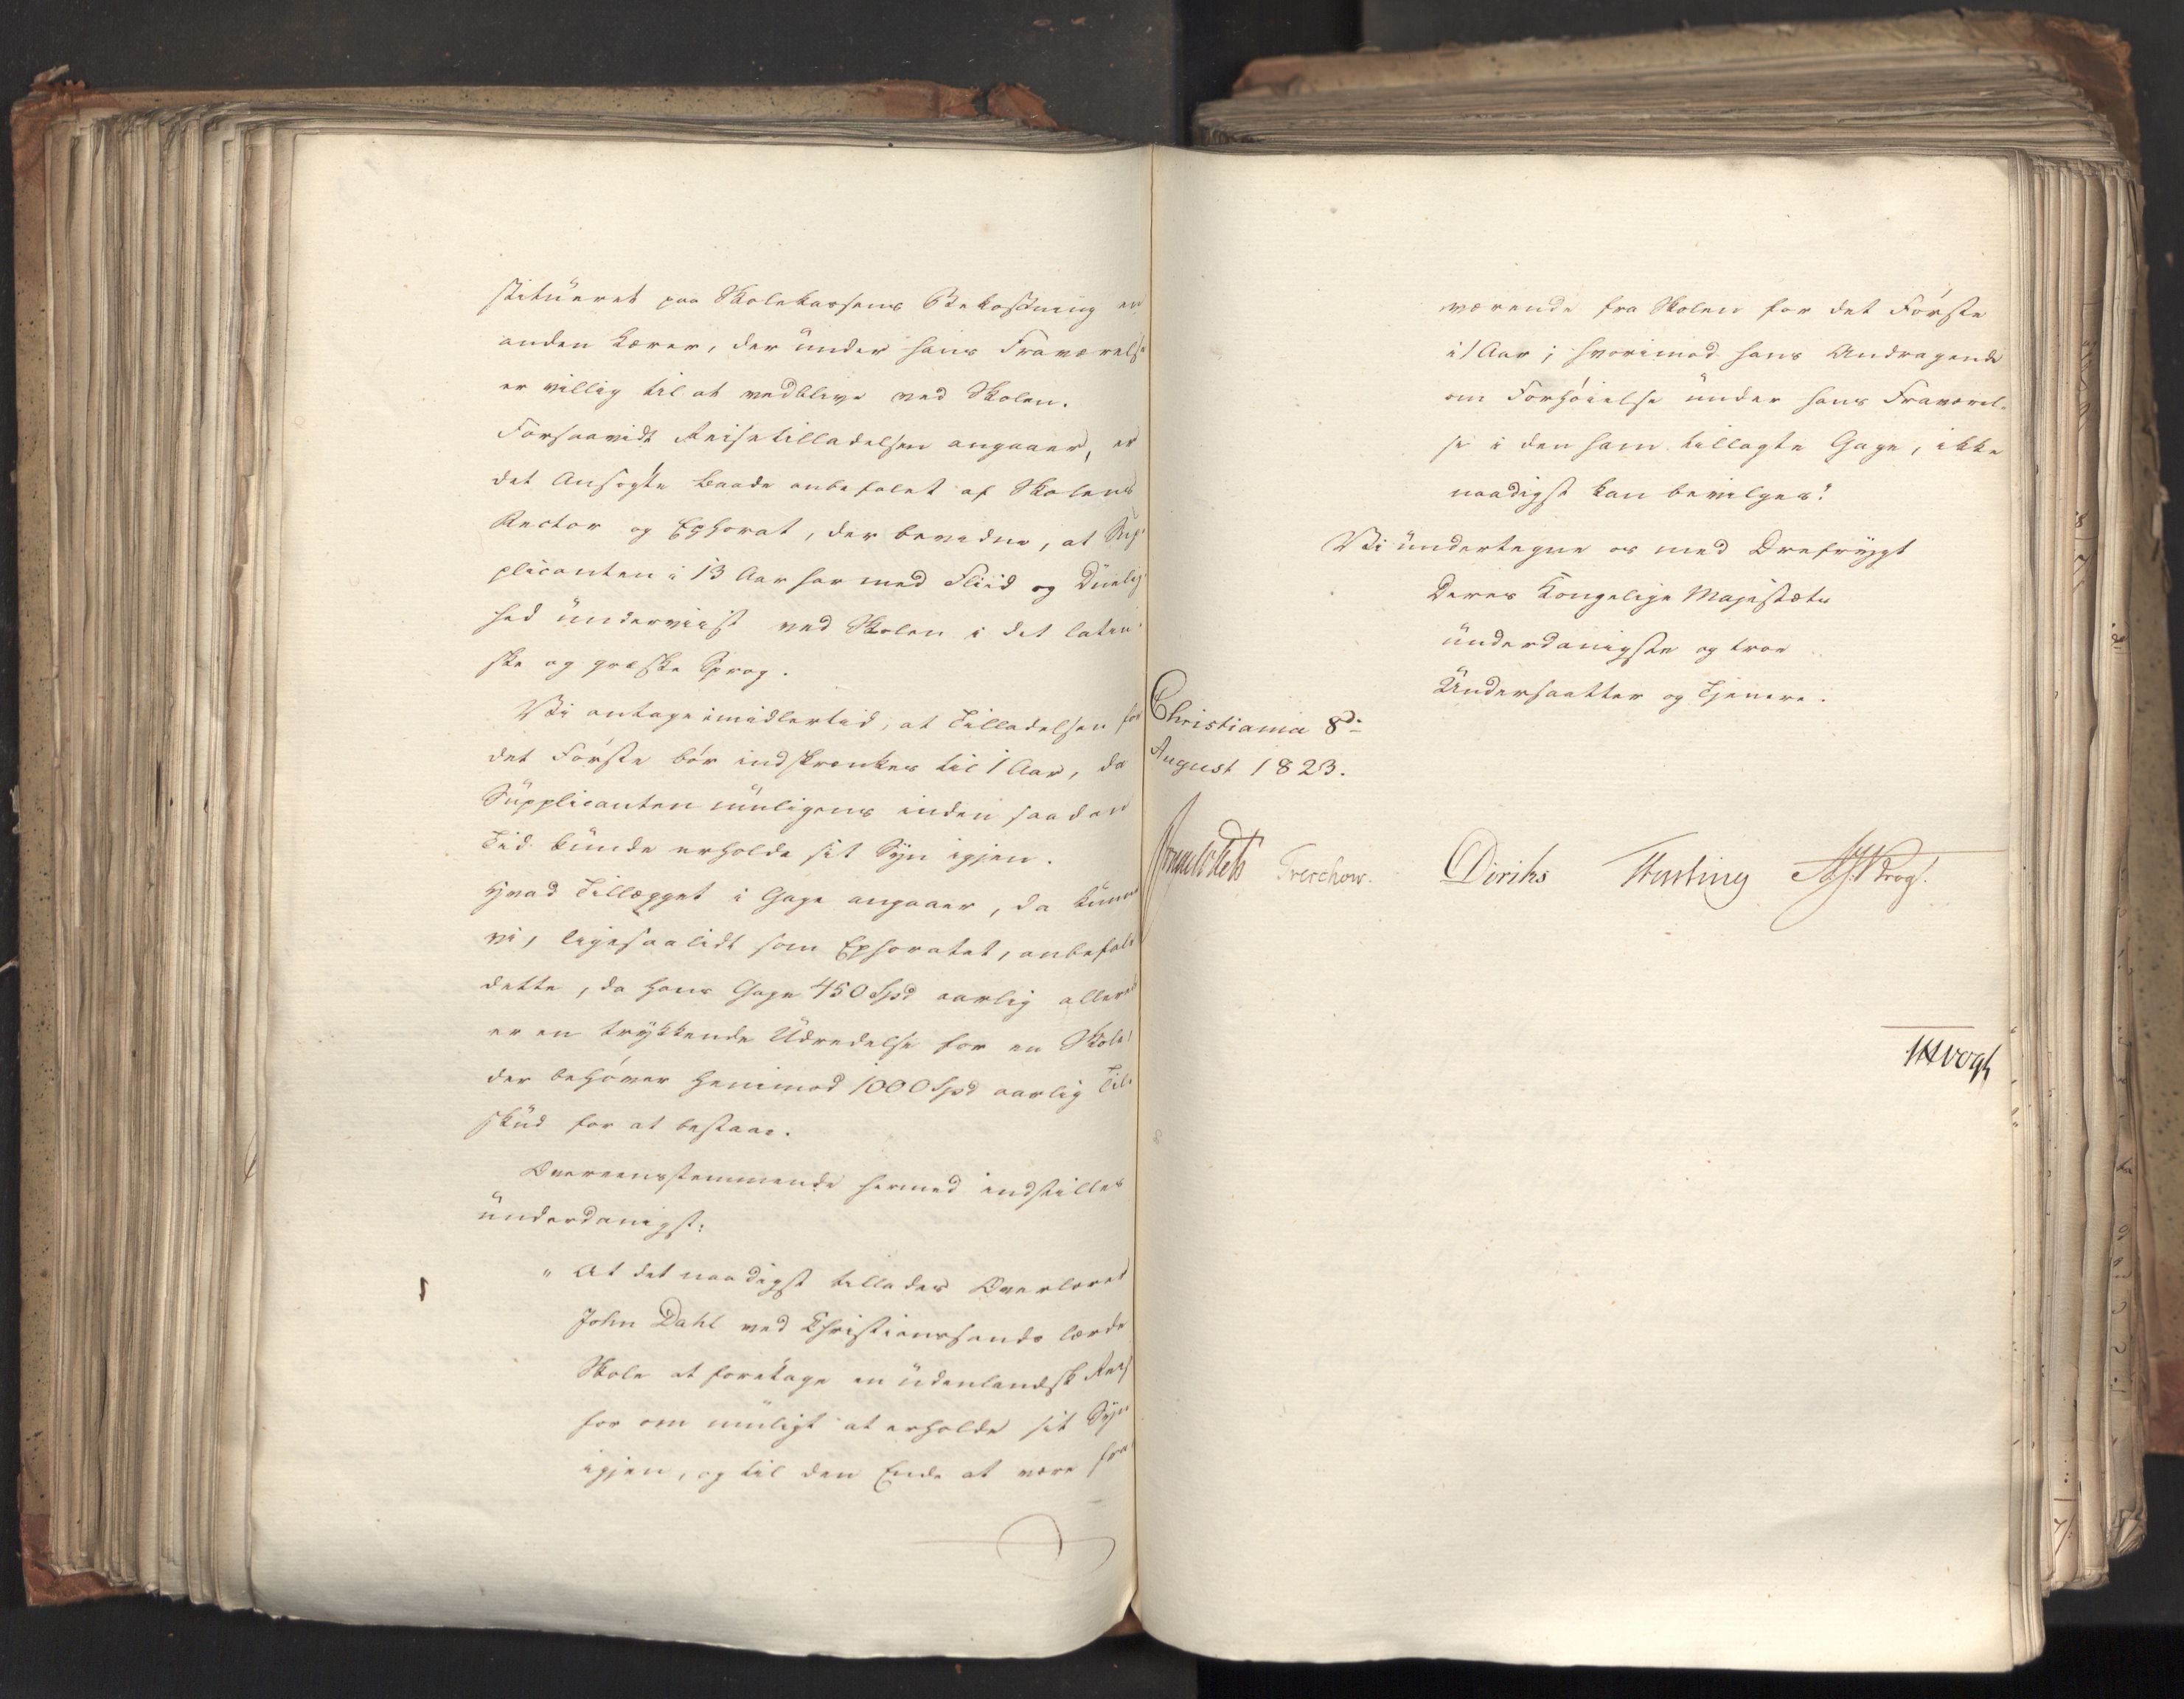 stitueret paa Skolekassens Bekostning en
anden Lærer, der under hans Fraværelse
er villig til at vedblive ved Skolen.
Forsaavidt Reisetilladelsen angaaer, er
det Ansøgte baade anbefalet af Skolens
Rector og Ephorat, der bevidne, at Sup-
plicanten i 13 Aar har med Fliid og Duelig-
hed underviist ved Skolen i det latin-
ske og græske Sprog.
Vi antage imidlertid, at Tilladelsen for
det Første bør indskrænkes til 1 Aar, da
Supplicanten muligens inden saadan
Tid kunde erholde sit Syn igjen.
Hvad Tillægget i Gage angaaer, da kunne
vi, ligesaalidt som Ephoratet, anbefale
dette, da hans Gage 450 Spd aarlig allerede
er en trykkende Udredelse for en Skole,
der behøver henimod 1000 Spd aarlig Til-
skud for at bestaae.
Overeensstemmende hermed indstilles
underdanigst:
1
"At det naadigst tillades Overlærer
John Dahl ved Christianssands lærde
Skole at foretage en udenlandsk Reise
for om muligt at erholde sit Syn
igjen, og til den Ende at være fra-
værende fra Skolen for det Første
i 1 Aar; hvorimod hans Andragende
om Forhøielse under hans Fraværel-
se i den ham tillagte Gage, ikke
naadigst kan bevilges."
Vi undertegne os med Ærefrygt
Deres Kongelige Majestæts
underdanigste og troe
Undersaatter og Tjenere.
Christiania 8de
August 1823.
Treschow. Diriks Motzfeldt Krog.
JHVogt